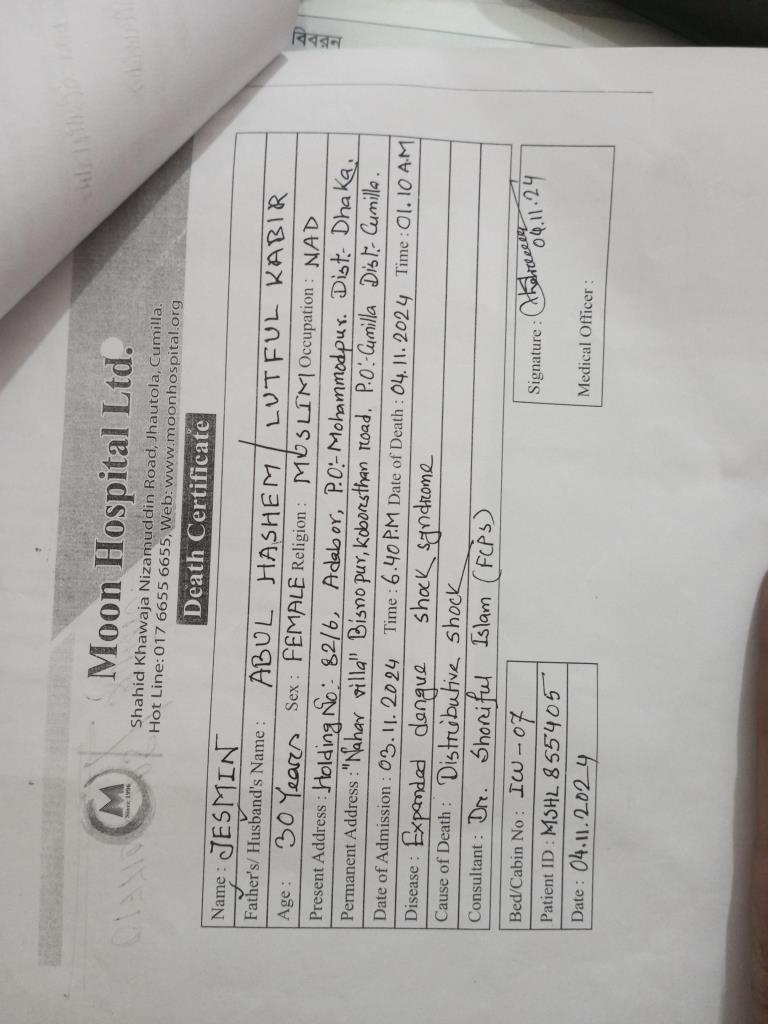 বিবরন
Moon Hospital Ltd.
Shahid Khawaja Nizamuddin Road, Jhautola, Cumilla.
Hot Line: 017 6655 6655, Web: www.moonhospital.org
M
Since 1996
Death Certificate
Name : JESMIN
Father's/ Husband's Name : ABUL HASHEM / LUTFUL KABIR
Age : 30 Years Sex : FEMALE Religion : MUSLIM Occupation : NAD
Present Address : Holding No:- 82/6, Adabor, P.O:- Mohammadpur. Dist:- Dhaka.
Permanent Address : "Nahar villa" Bisnopur, koborsthan road. P.O:- Cumilla Dist:- Cumilla.
Date of Admission : 03.11.2024 Time : 6.40 P.M Date of Death : 04.11.2024 Time : 01.10 A.M
Disease : Expanded dengue shock syndrome
Cause of Death : Distributive shock
Consultant : Dr. Shoriful Islam (FCPS)
Bed/Cabin No : ICU-07
Patient ID : MSHL 855405
Date : 04.11.2024
Signature :
04.11.24
Medical Officer :